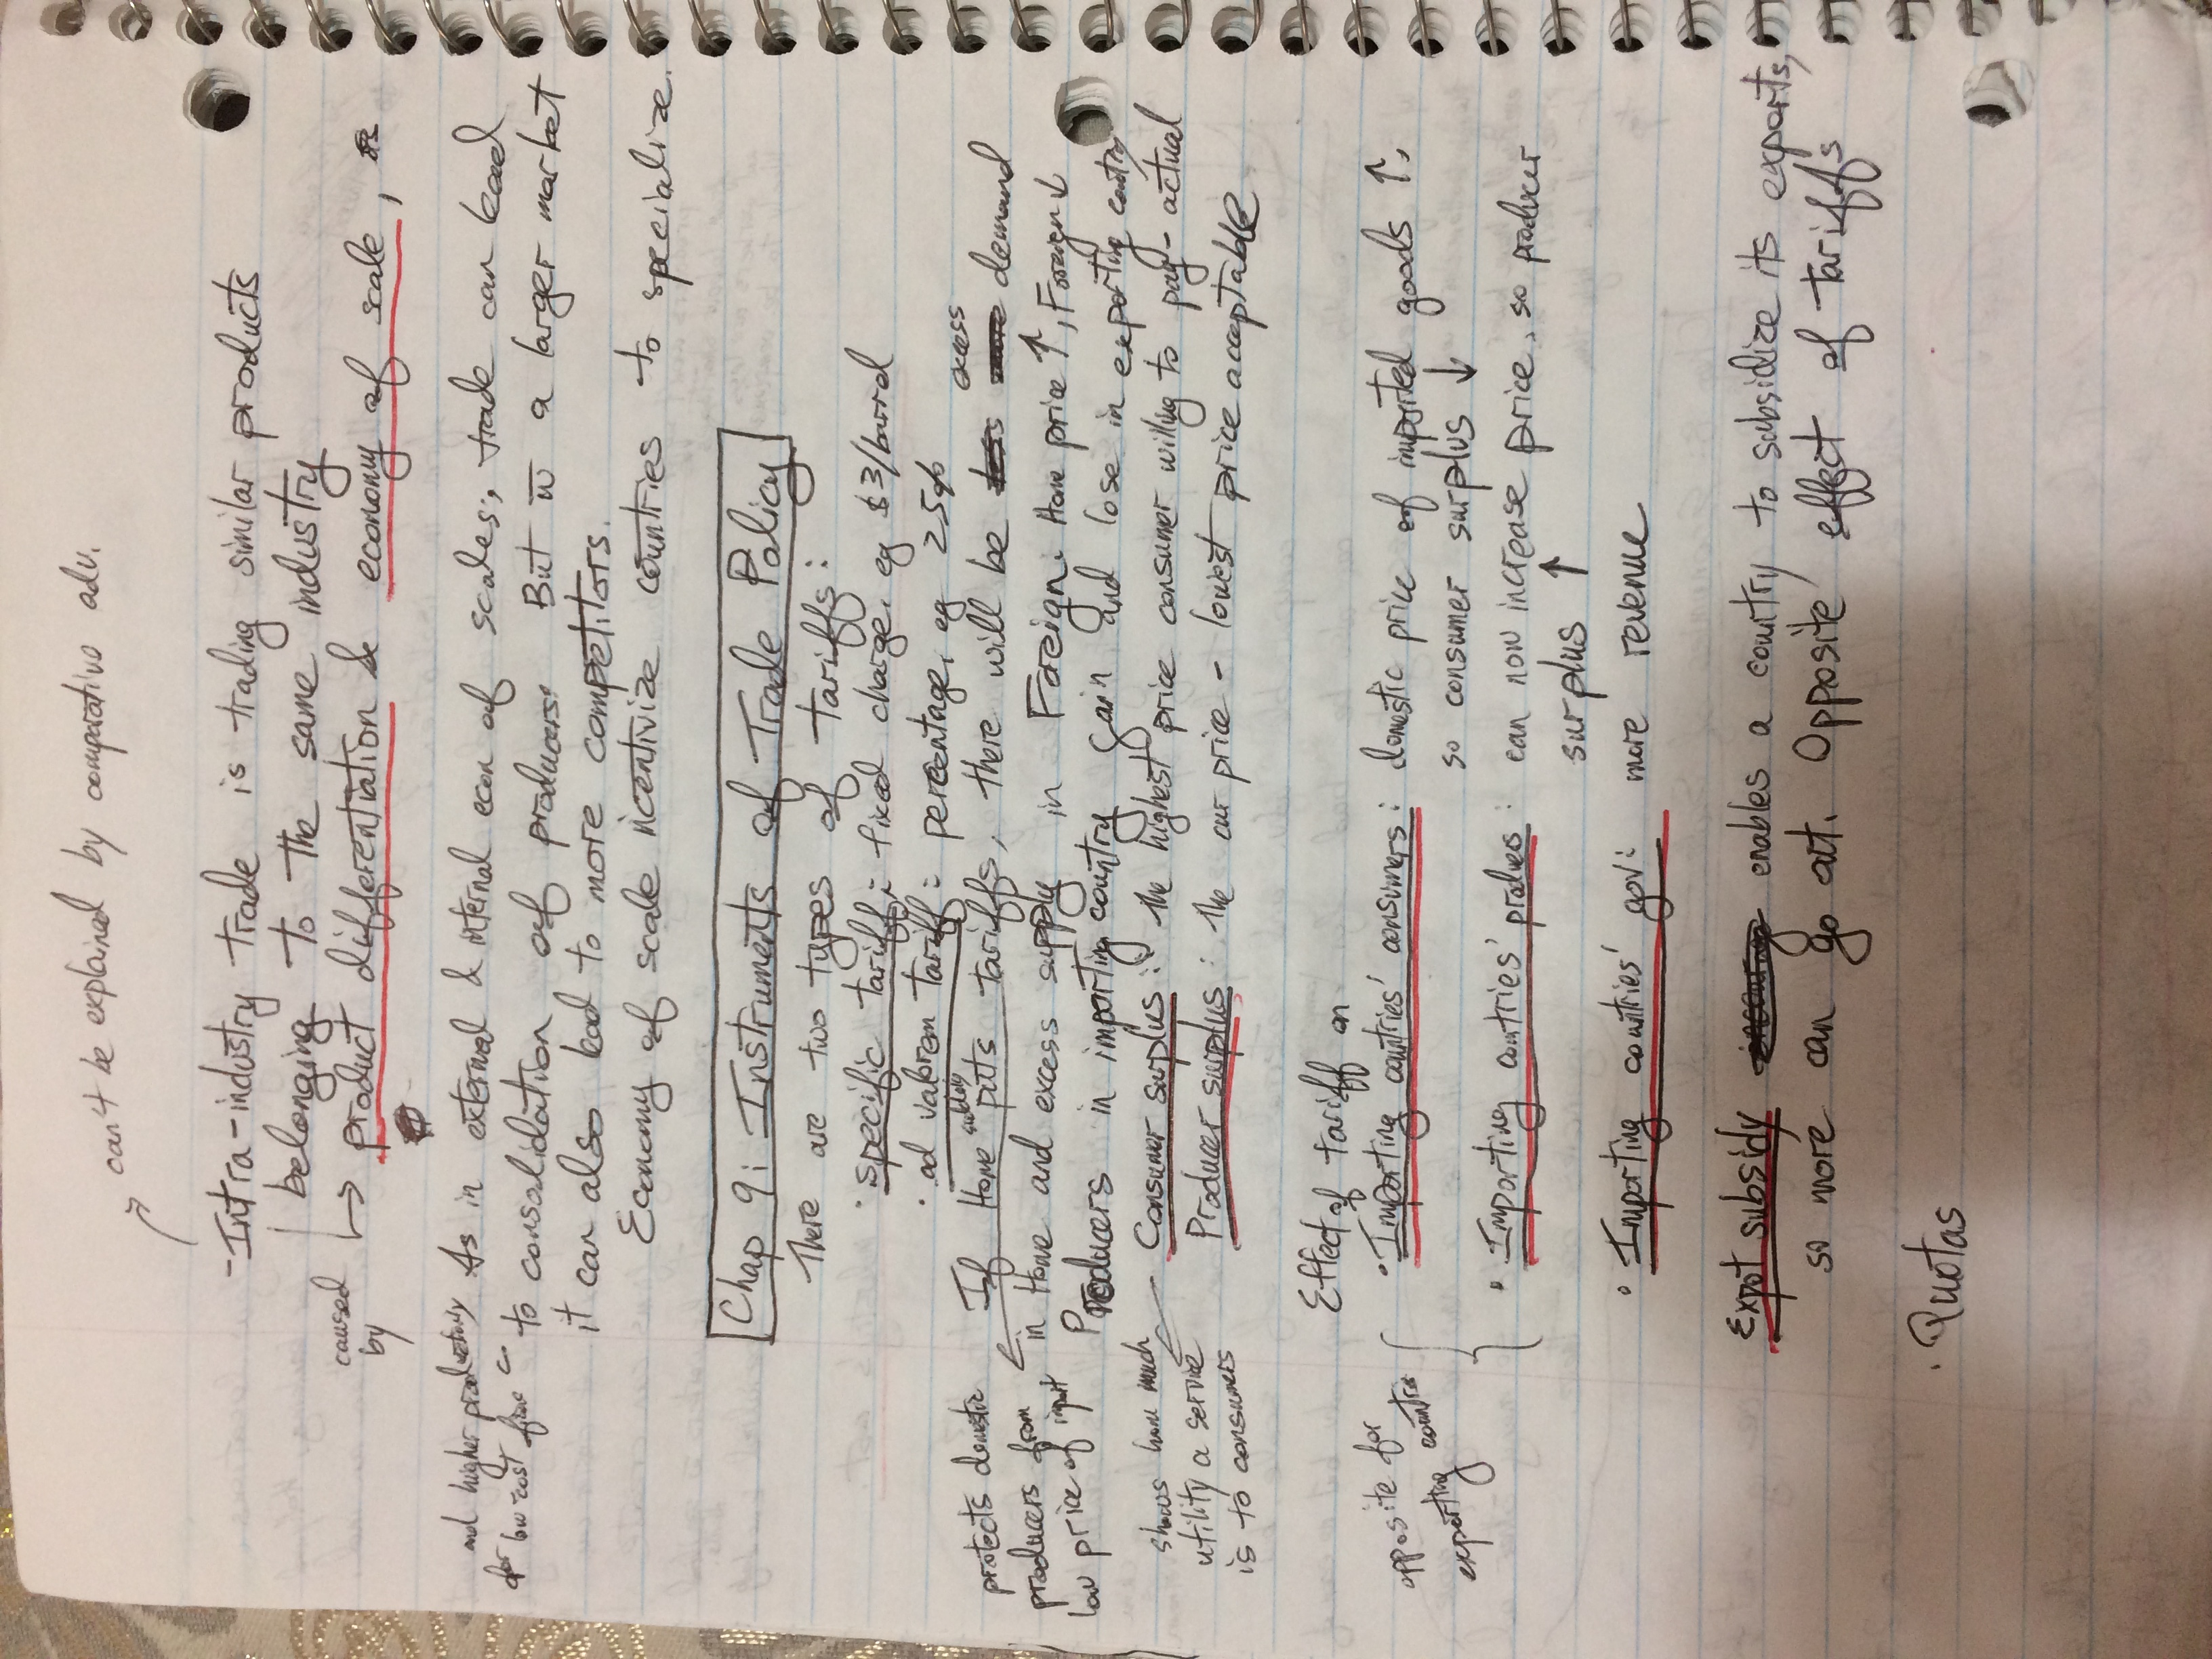 can't be explained by comparative adv.
-Intra-industry trade is trading similar products
belonging to the same industry
caused
by
product differentiation & economy of scale,
and higher productivity
for low-cost
As in external & internal econ of scales, trade can lead
to consolidation of producers. But w̅ a larger market
it can also lead to more competitors.
Economy of scale incentivize countries to specialize.
Chap 9: Instruments of Trade Policy
There are two types of tariffs:
· specific tariff: fixed charge, eg $3/barrel
· ad valorem tariff: percentage, eg 25%
If Home suddenly puts tariffs, there will be excess demand
in Home and excess supply in Foreign. Home price ↑, Foreign ↓
protects domestic
producers from
low price of import
Producers in importing country gain and lose in exporting contry
Consumer surplus: the highest price consumer willing to pay - actual
shows how much
utility a service
is to consumers
Producer surplus: the cur price - lowest price acceptable
Effect of tariff on
opposite for
exporting countries
• Importing countries' consumers: domestic price of imported goods ↑,
so consumer surplus ↓
• Importing countries' producers: can now increase price, so producer
surplus ↑
• Importing countries' gov: more revenue
Expot subsidy enables a country to subsidize its exports,
so more can go out. Opposite effect of tariffs
· Quotas